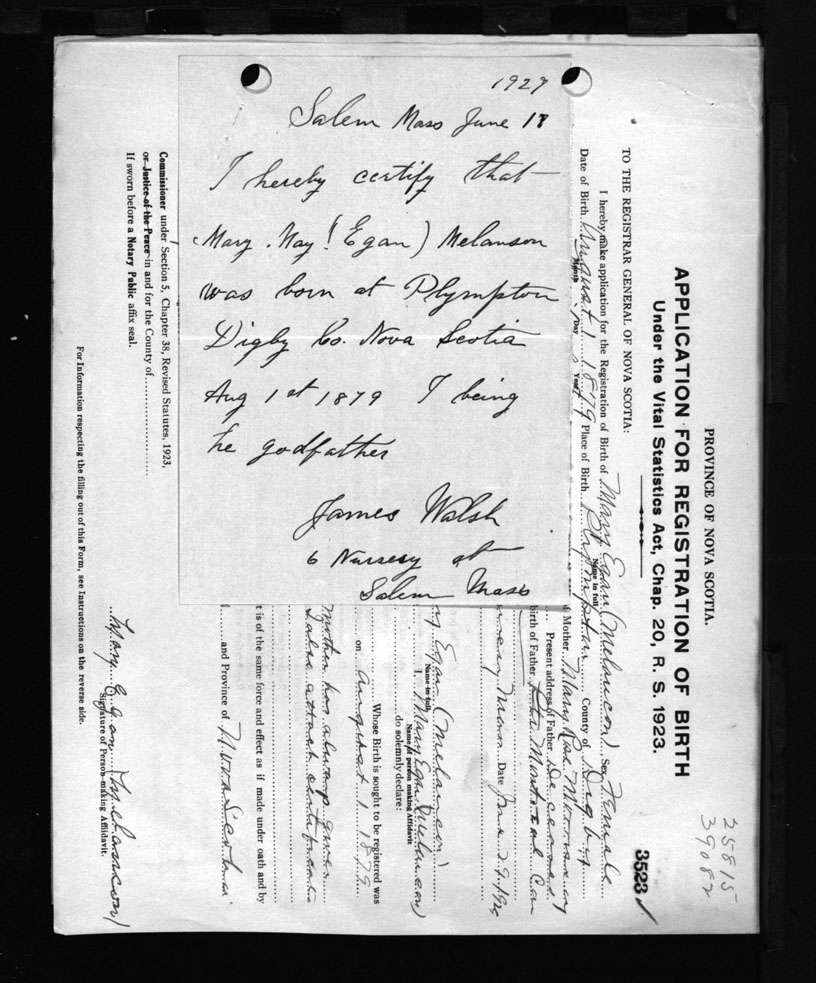 1929
Salem Mass June 18
I hereby certify that
Mary. May (Egan) Melanson
was born at Plympton
Digby Co. Nova Scotia
Aug 1st 1879 I being
he godfather
James Walsh
6 Nursery st
Salem Mass
PROVINCE OF NOVA SCOTIA.
APPLICATION FOR REGISTRATION OF BIRTH
Under the Vital Statistics Act, Chap. 20, R. S. 1923.
25815
39082
3523
TO THE REGISTRAR GENERAL OF NOVA SCOTIA:
I hereby make application for the Registration of Birth of Mary Egan (Melancon) Sex Female
Name in full
Date of Birth August 1 1879 Place of Birth Plympton County of Digby
Month Day Year
Mother Mary
Present address of Father Deceased
birth of Father
Mass Date June 29.
Egan (Melancon)
Name in full
I, Mary Egan (Melancon)
Name of person making Affidavit
do solemnly declare:
Whose Birth is sought to be registered was
on August 1 1879
Mother has
t is of the same force and effect as if made under oath and by
and Province of Nova Scotia
Mary Egan (Melancon)
Signature of Person making Affidavit.
Commissioner under Section 5, Chapter 38, Revised Statutes, 1923,
or Justice of the Peace in and for the County of
If sworn before a Notary Public affix seal.
For Information respecting the filling out of this Form, see Instructions on the reverse side.